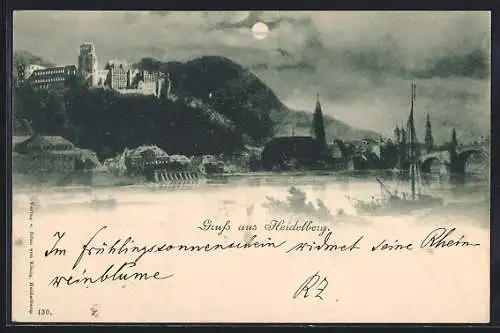 Gruß aus Heidelberg.
Im Frühlingssonnenschein widmet seine Rhein-
weinblume
RZ
Verlag v. Edm. von König, Heidelberg
130.